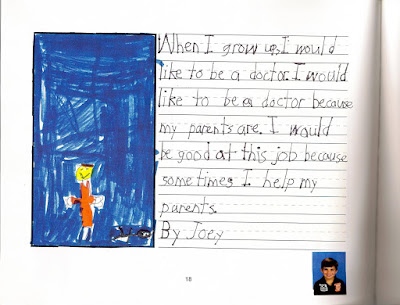 When I grow up, I would
like to be a doctor. I would
like to be a doctor because
my parents are. I would
be good at this job because
sometimes I help my
parents.
By Joey
18